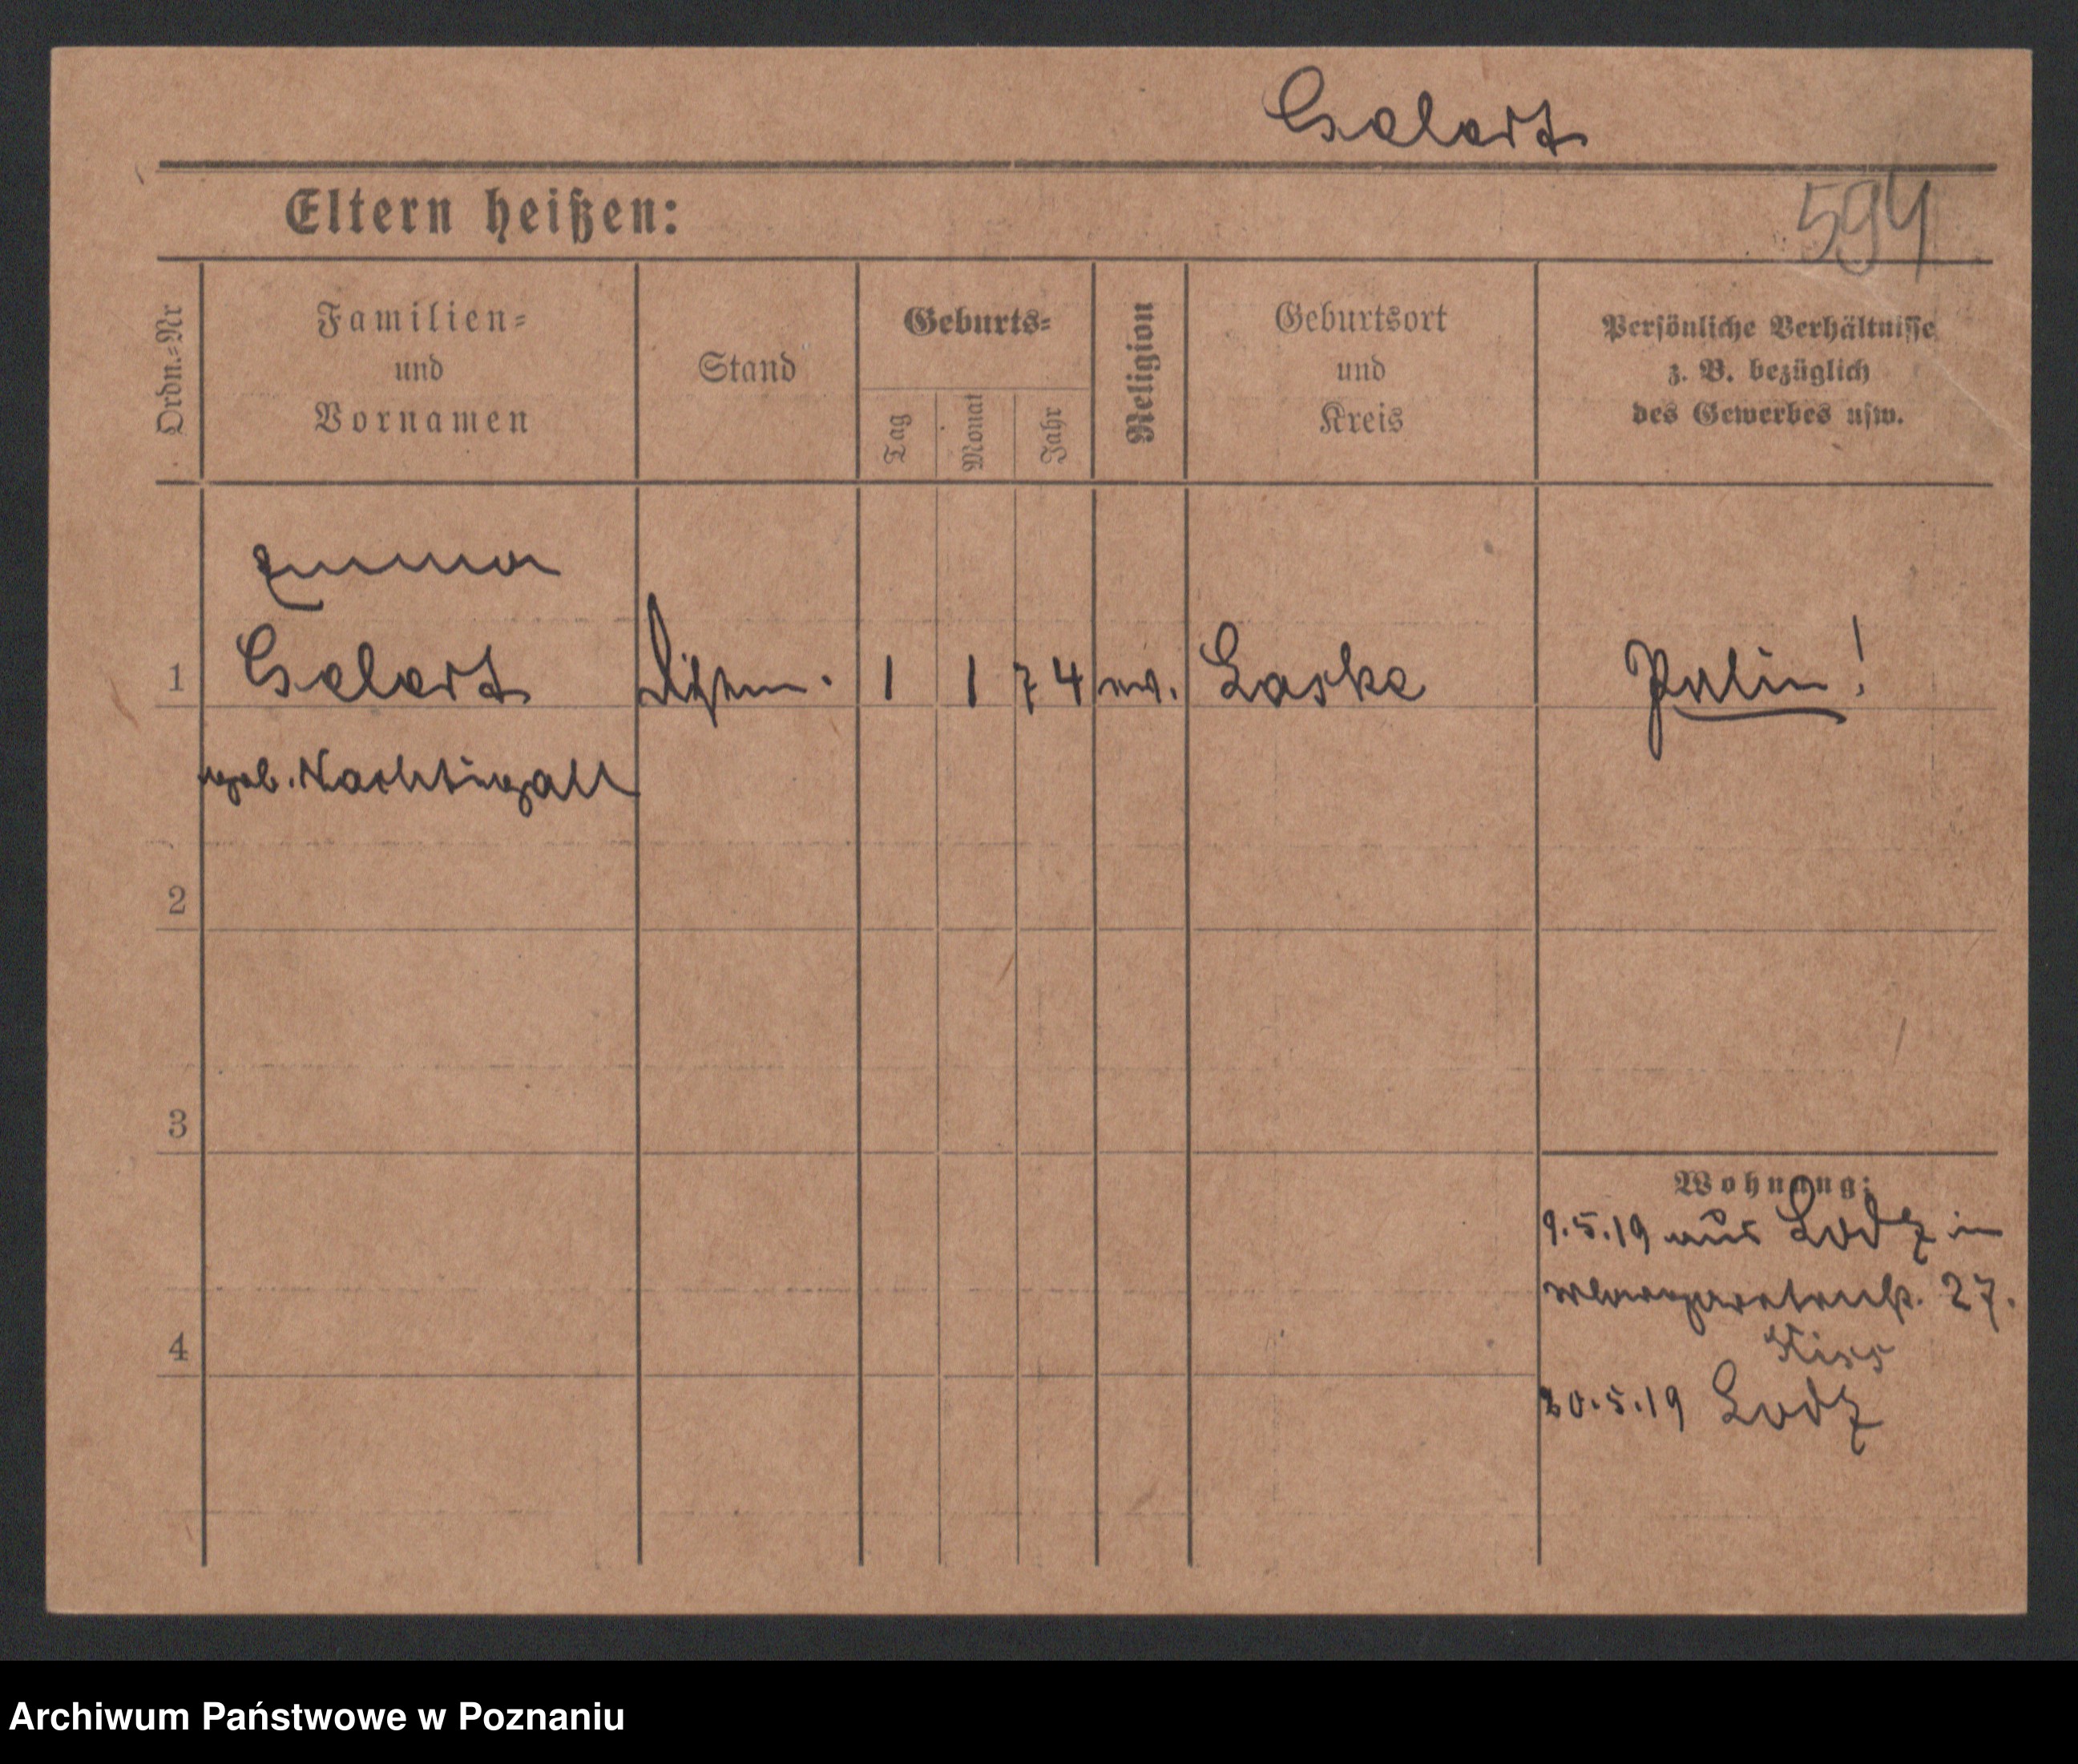 Gelert
Eltern heißen:
594
Ordn.=Nr
Familien=
und
Vornamen
Stand
Geburts=
Tag
Monat
Jahr
Religion
Geburtsort
und
Kreis
Persönliche Verhältnisse
z. B. bezüglich
des Gewerbes usw.
Emma
1 Gelert 1 1 74 ev. Laske Polin!
geb. Nachtingall
2
3
Wohnung:
9.5.19 aus Lodz in
Margaretenstr. 27.
4
20.5.19 Lodz
Archiwum Państwowe w Poznaniu